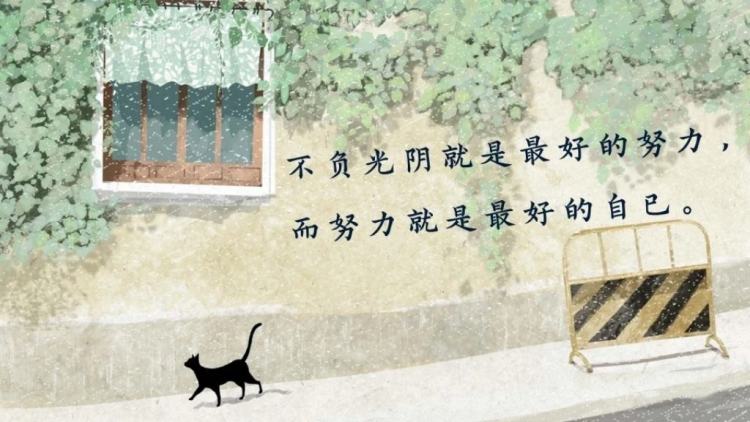 不负光阴就是最好的努力，
而努力就是最好的自已。